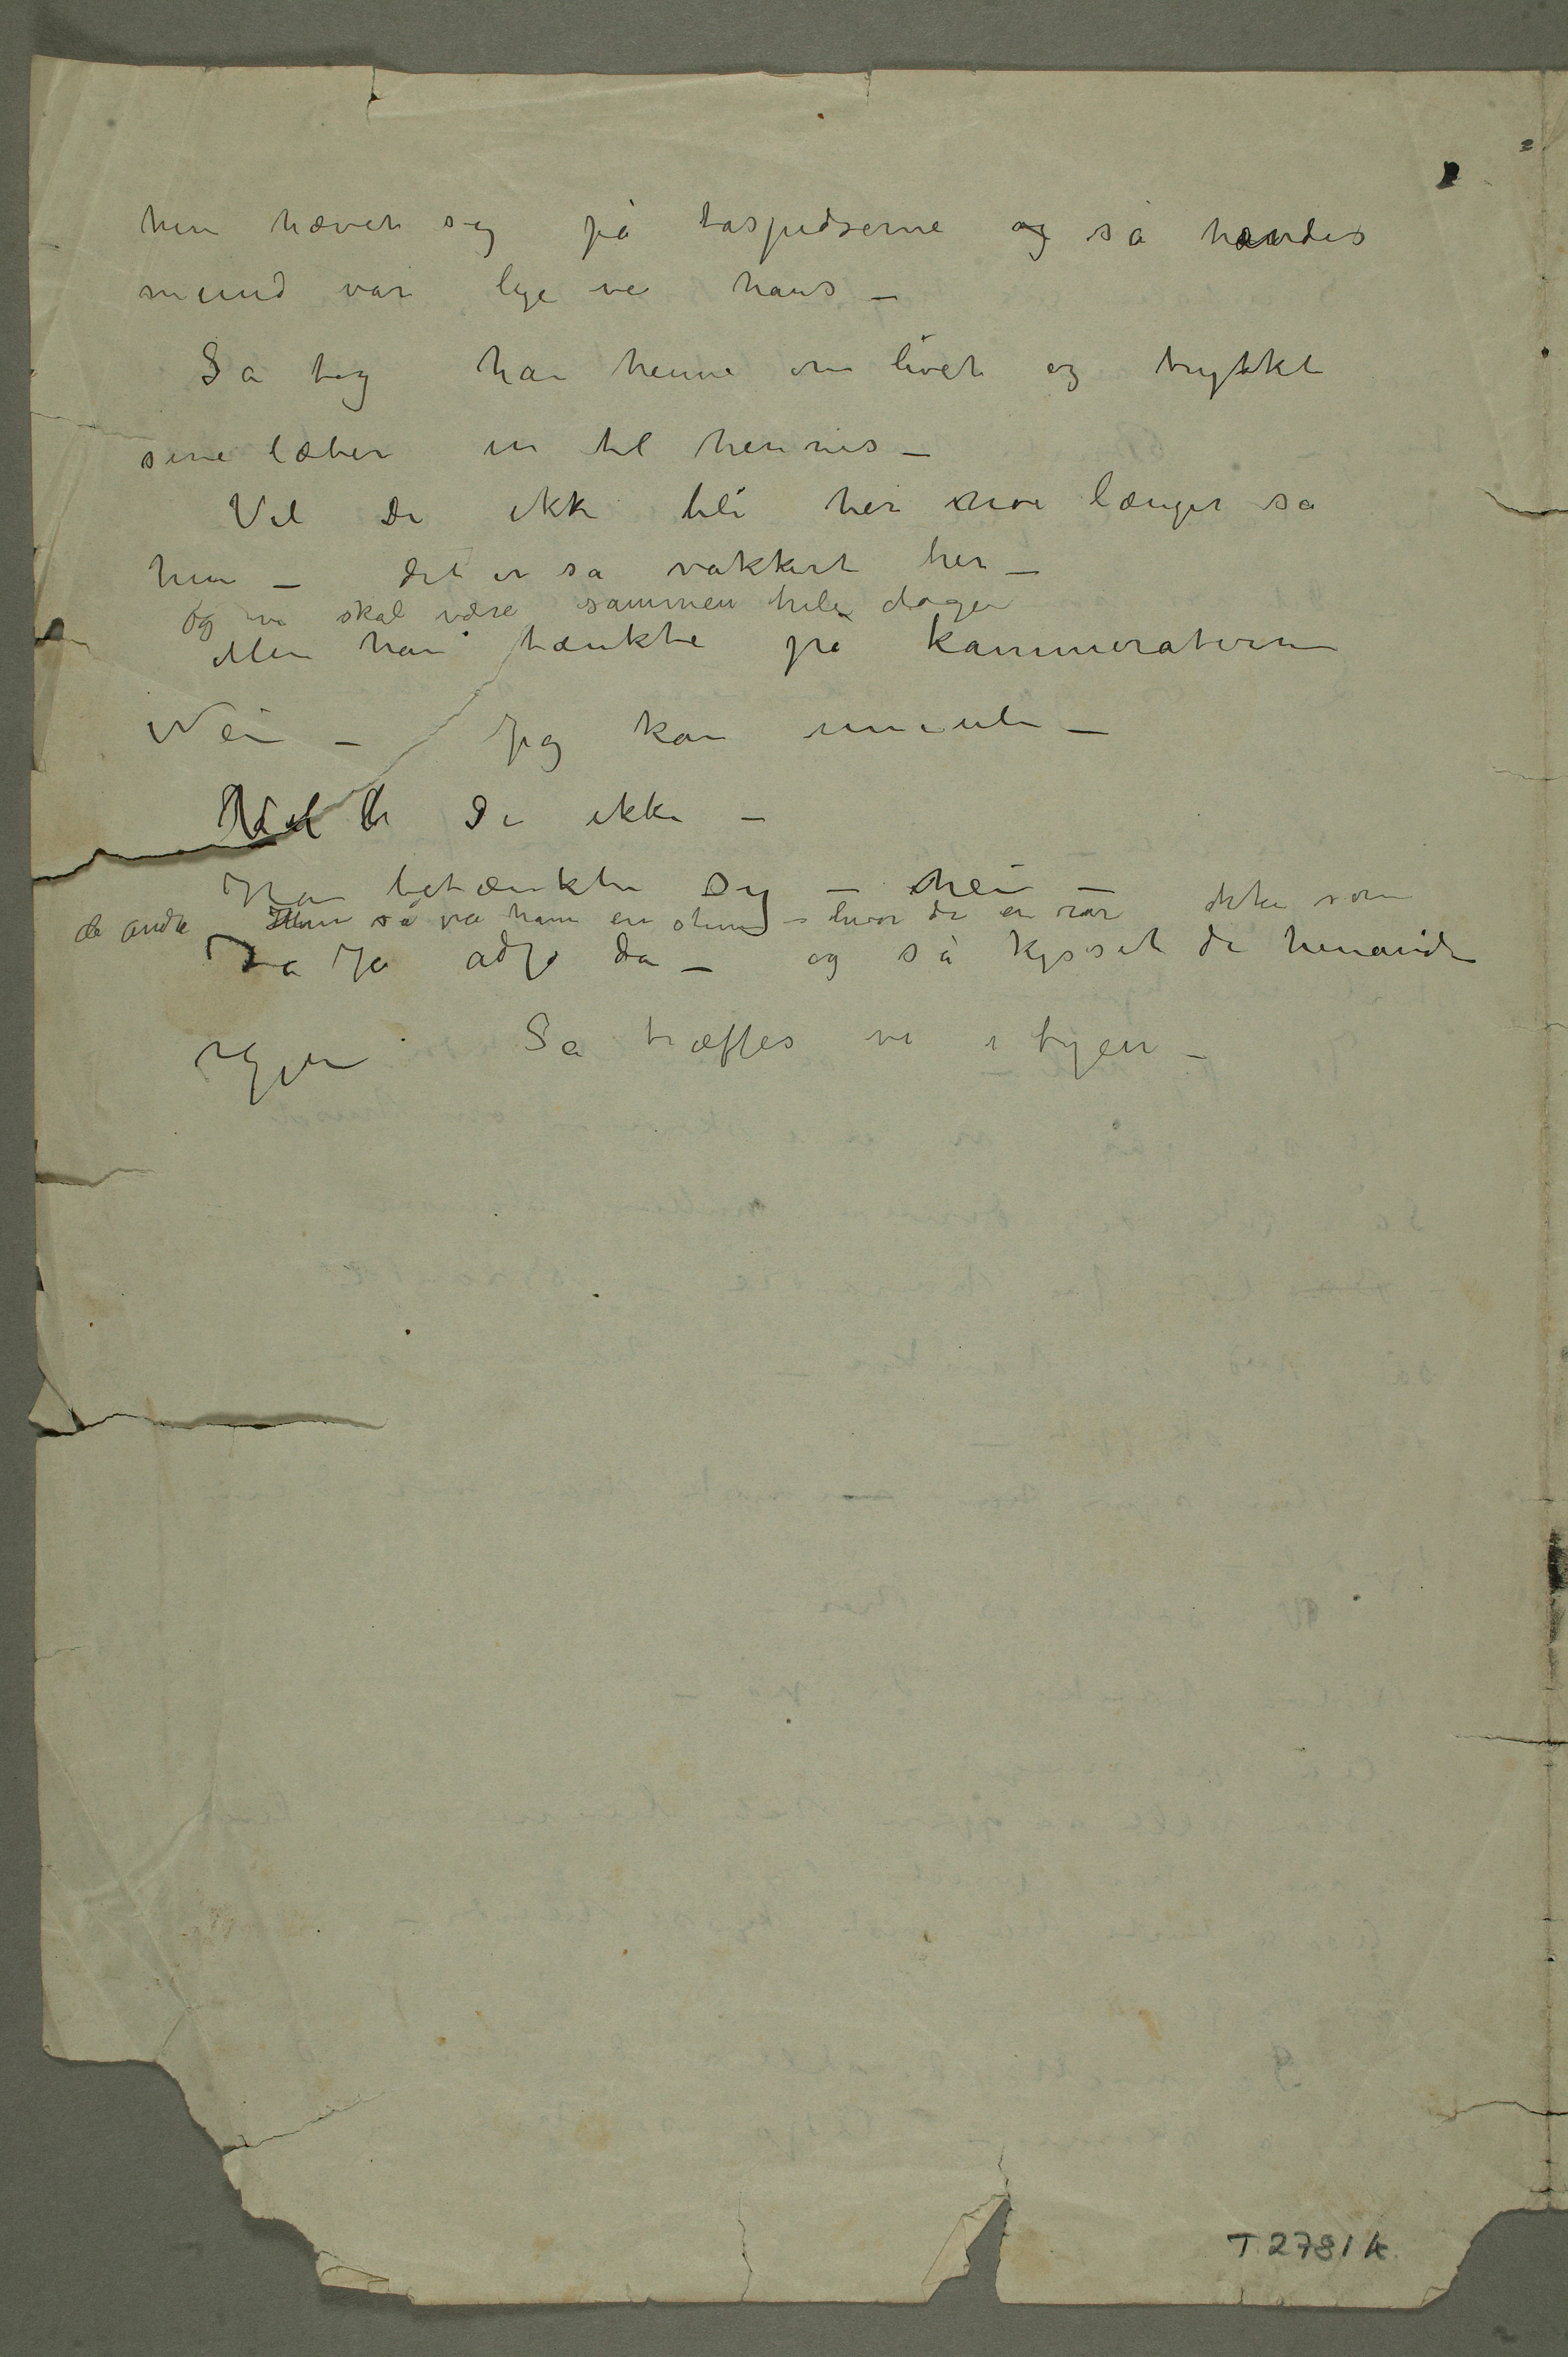 hun hævet sig på taspidserne og så hendes
mund var lige ve hans –
Så tog han henne om livet og trykkt
sine læber in til hennes –
Vil De ikke bli her noe længer sa
hun – det er så vakkert her –
og vi skal være sammen hele dagen
Men han tænkte på kammeraterne
Nei – Jeg kan umuli –
Vil De ikke –
Han betænkte sig – nei –
Hun så på ham en stund – hvor De er rar ikke som
de andre
Ja Ja adjø da – og så kysset de hinanden
igjen Så træffes vi i byen –
T 2781k